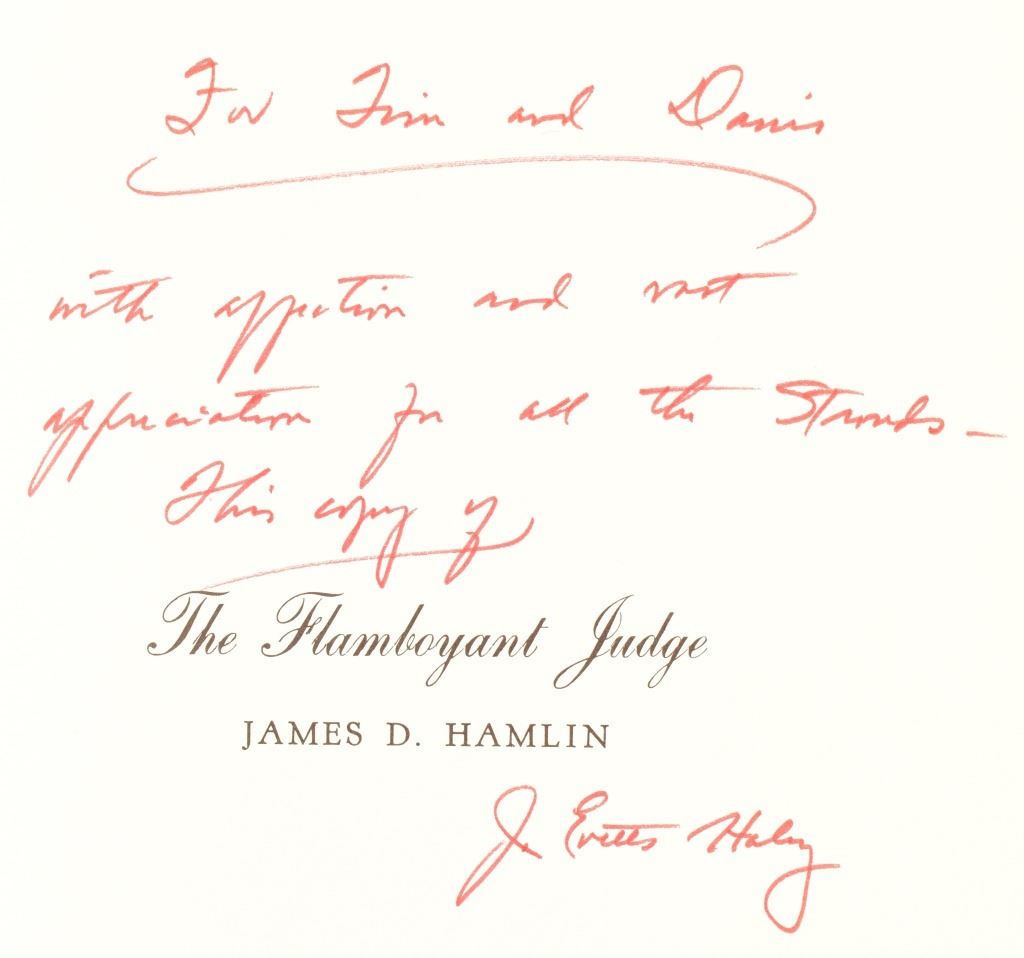 For Tim and Davis
with affection and vast
appreciation for all the Strouds -
This copy of
The Flamboyant Judge
JAMES D. HAMLIN
J. Evetts Haley